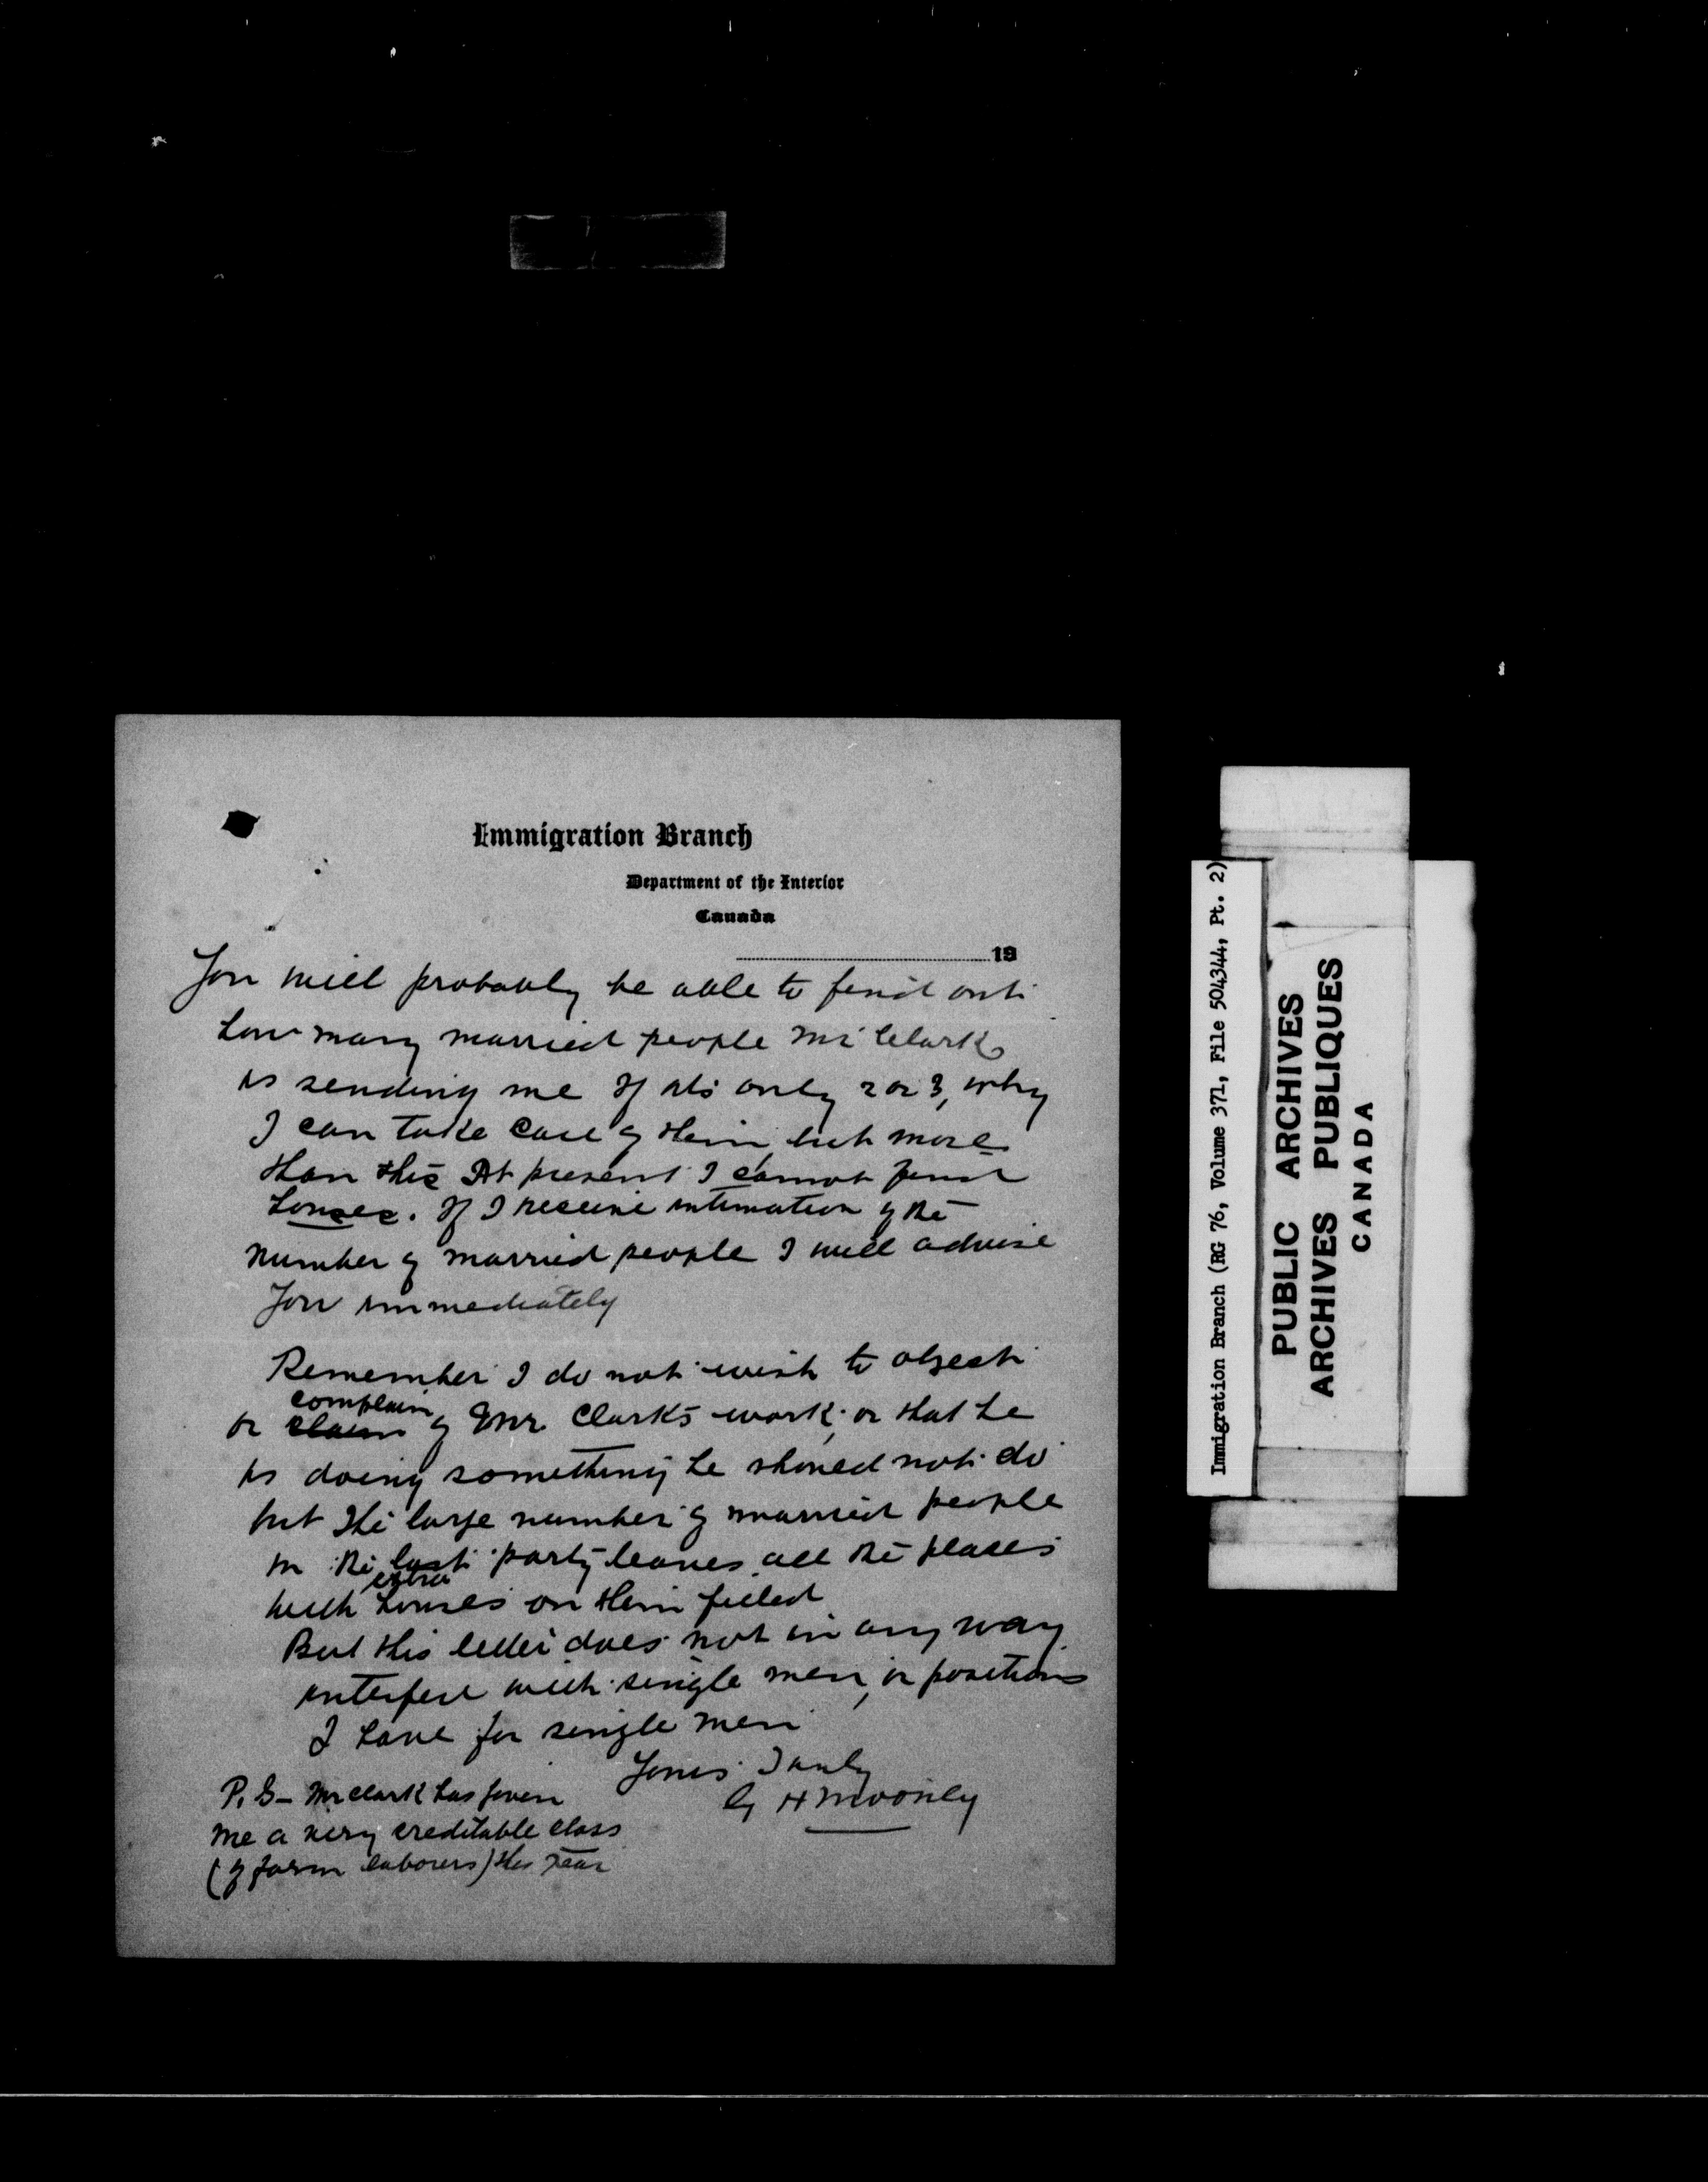 Immigration Branch
Department of the Interior
Canada
19
You will probably be able to find out
how many married people Mr Clark
is sending me If its only 2 or 3, why
I can take care of them, but more
than this At present I cannot find
houses. If I receive intimation of the
number of married people I will advise
you immediately
Remember I do not wish to object
complain
or claim of Mr. Clark's work, or that he
is doing something he should not do
but the large number of married people
in the last party leaves all the places
extra
with houses on them filled
But this letter does not in any way
interfere with single men, or positions
I have for single men
Yours Truly
G H Moonly
P.S- Mr Clark has given
me a very creditable class
(of farm laborers) this year
Immigration Branch (RG 76, Volume 371, File 504344, Pt. 2)
PUBLIC ARCHIVES
ARCHIVES PUBLIQUES
CANADA